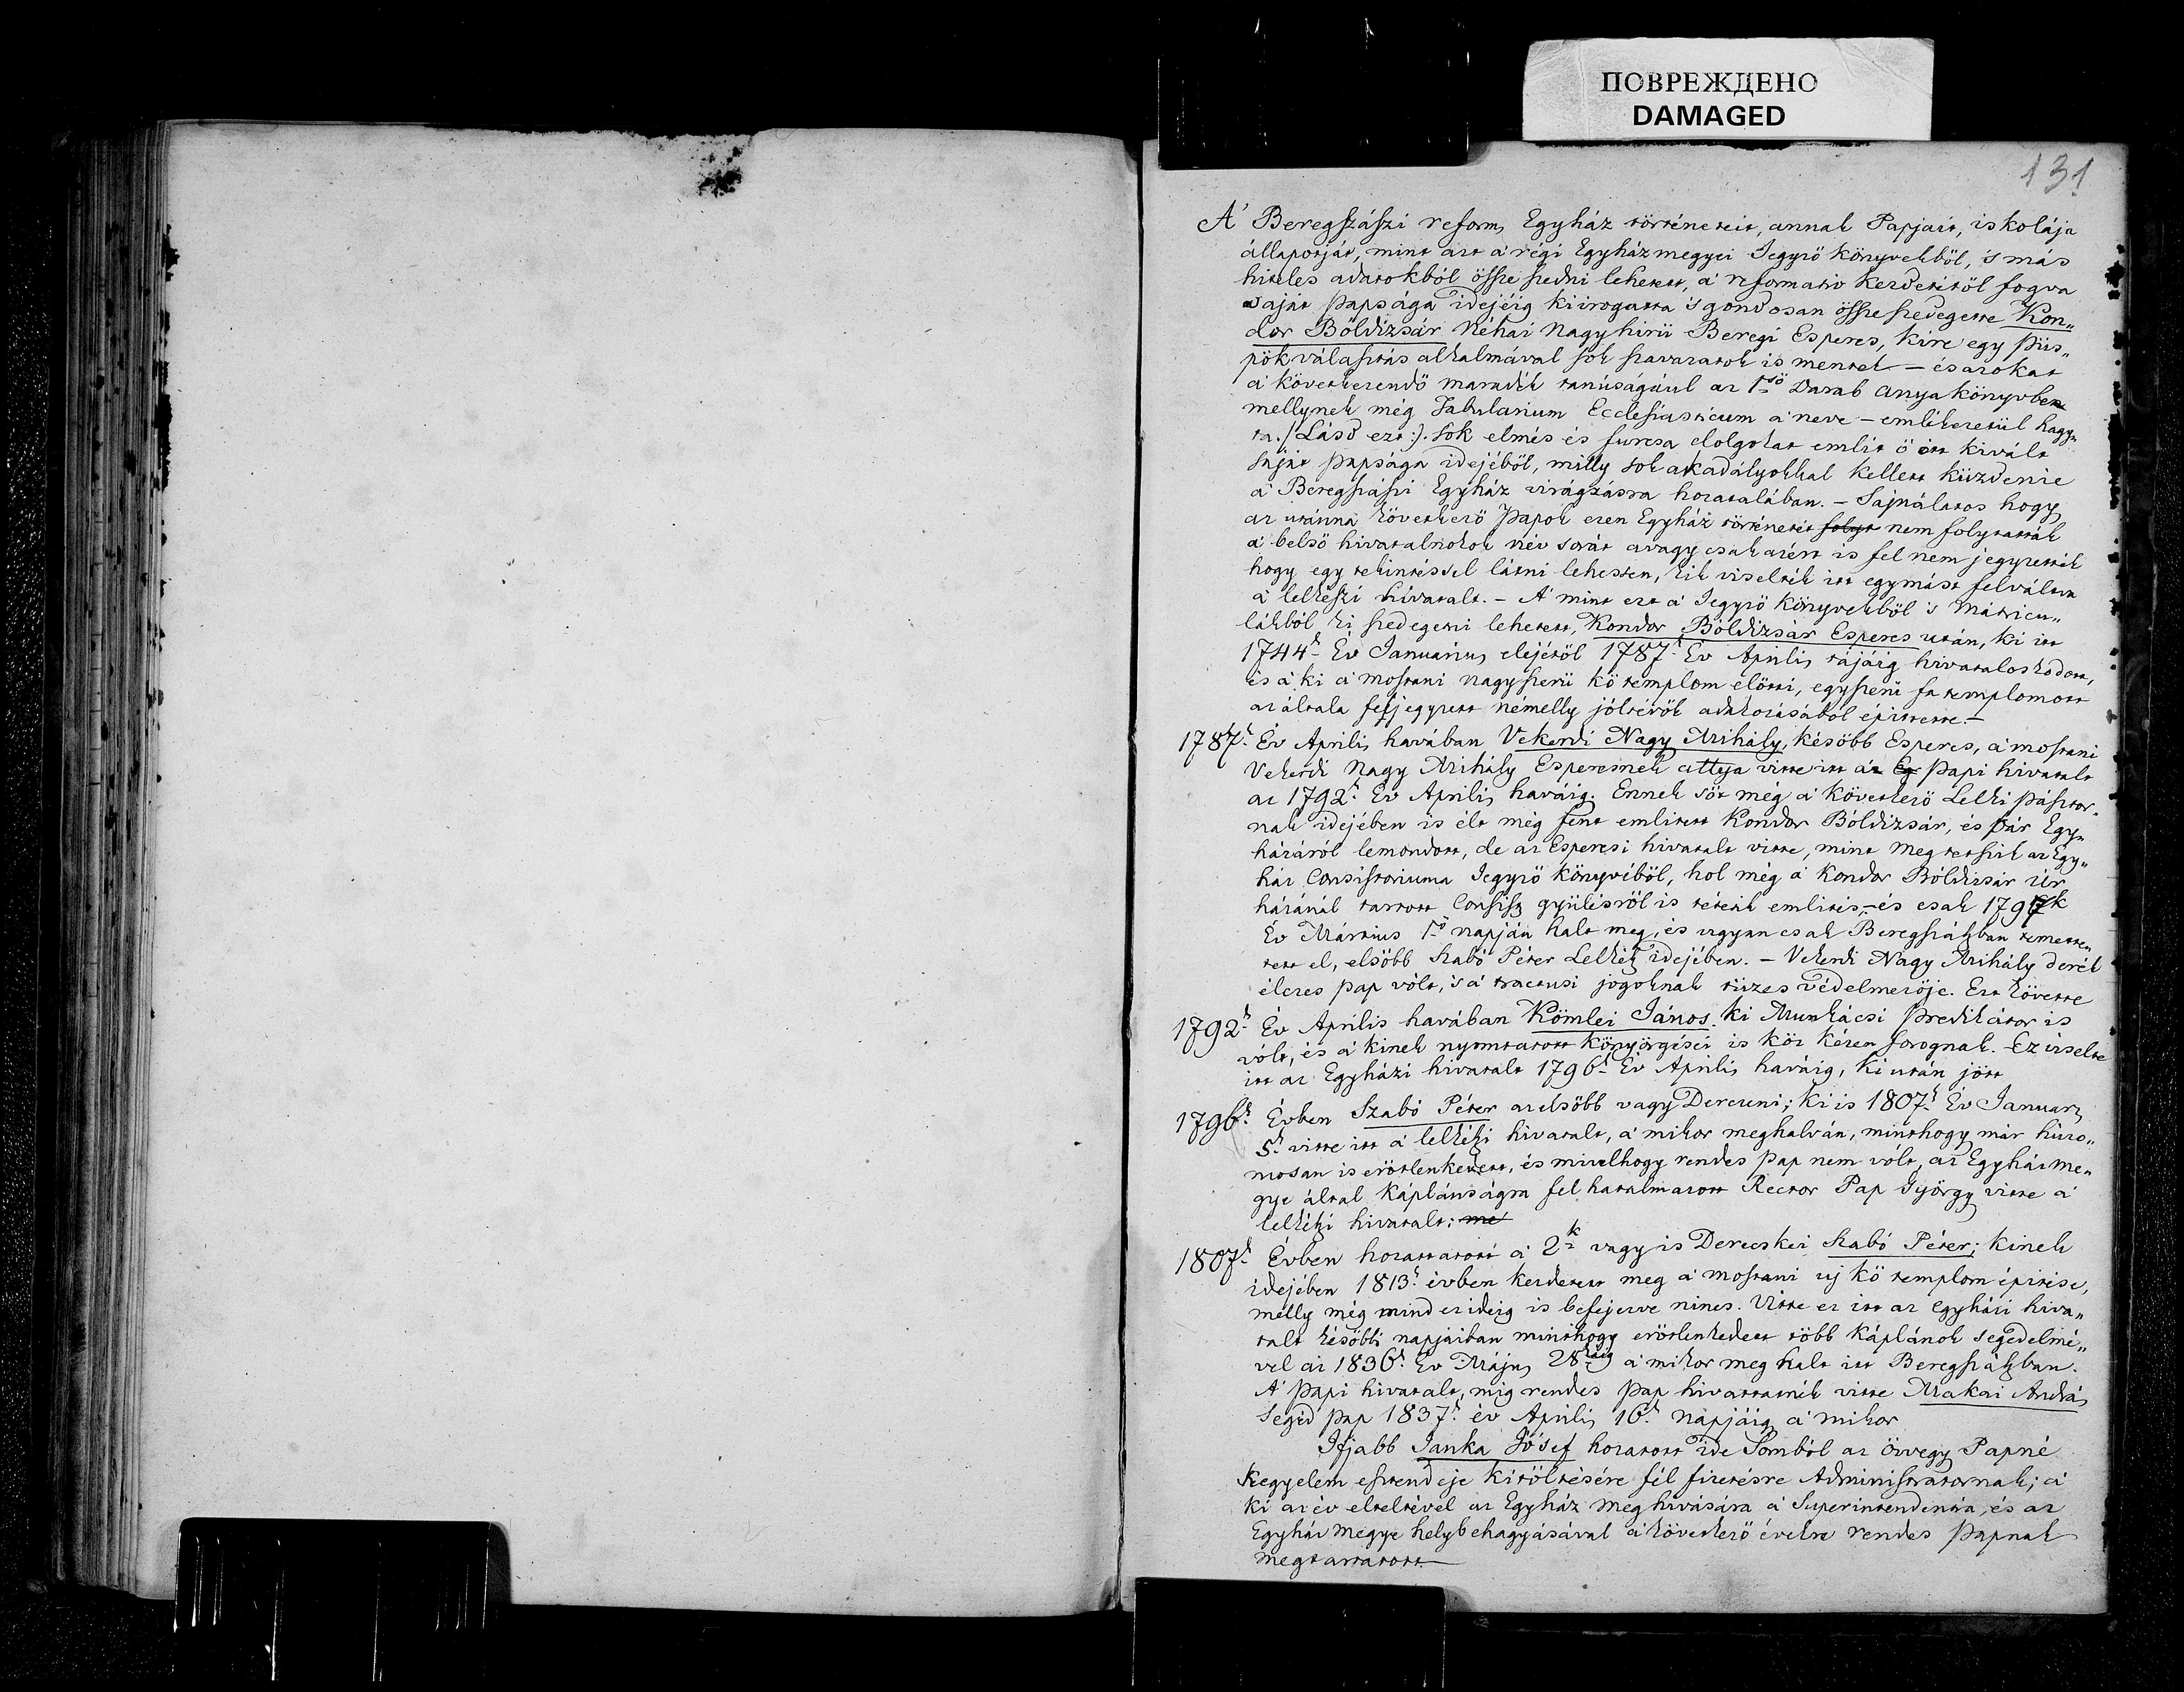 ПОВРЕЖДЕНО
DAMAGED
131
A' Beregszászi reform, Egyház történeteit, annak Papjait, iskolája
állapotját, mint azt a' régi Egyházmegyei Jegyző könyvekből, 's más
hiteles adatokból össze szedni lehetett, a' reformatio kezdetétől fogva
saját papsága idejéig kiirogatta 's gondosan össze szedegette Kon„
dor Bóldizsár néhai nagyhirü Beregi Esperes, kire egy püs„
pökválasztás alkalmával sok szavazatok is mentek – és azokat
a' következendő maradék tanúságáúl az 1ső Darab Anyakönyvben
mellynek még Tabularium Ecclesiasticum a' neve – emlékezetül hagy„
ta. /: Lásd ezt :/. Sok elmés és furcsa dolgokat emlit ő ott kivált
saját papsága idejéből, milly sok akadályokkal kellett küzdenie
a' Beregszászi Egyház virágzásra hozatalában. – Sajnálatos hogy
az utánna következő Papok ezen Egyház történetét folyt nem folytatták
a' belső hivatalnokok név sorát avagy csak azért is fel nem jegyzették
hogy egy tekintéssel látni lehessen, kik viselték itt egymást felváltva
a' lelkészi hivatalt. – A' mint ezt a' Jegyző könyvekből 's Mátricu„
lákból ki szedegetni lehetett, Kondor Bóldizsár Esperes után, ki itt
1744k Év Januárius elejétől 1787k Év Április tájáig hivataloskodott,
és a' ki a' mostani nagyszerü kő templom előtti, egyszerü fa templomott
az általa feljegyzett némelly jóltévők adakozásából épittette. –
1787k Év Április havában Vekerdi Nagy Mihály, később Esperes, a' mostani
Vekerdi Nagy Mihály Esperesnek attya vitte itt az Eg papi hivatalt
az 1792k Év Április haváig. Ennek sőt még a' következő Lelki pásztor„
nak idejében is élt még fent emlitett Kondor Bóldizsár, és bár Egy„
házáról lemondott, de az Esperesi hivatalt vitte, mint megtetszik az Egy„
ház Consistoriuma Jegyző könyvéből, hol még a' Kondor Bóldizsár Úr
házánál tartott Consist. gyülésről is tétetik emlités, – és csak 1797k
Év Mártius 1ső napján halt meg, és ugyan csak Beregszászban temetten„
tett el, elsőbb Szabó Péter Lelkész idejében. – Vekerdi Nagy Mihály derék
élczes pap vólt, 's a' tractusi jogoknak tüzes védelmezője. Ezt követte
1792k Év Április havában Kömlei János, ki Munkácsi prédikátor is
vólt, és a' kinek nyomtatott könyörgései is köz kézen forognak. Ez viselte
itt az Egyházi hivatalt 1796k Év Április haváig, ki után jött
1796k Évben Szabó Péter az elsőbb vagy Derczeni; ki is 1807k Év Január,
5k vitte itt a' lelkészi hivatalt, a' mikor meghalván, minthogy már huzo„
mosan is erőtlenkedett, és mivelhogy rendes pap nem vólt, az Egyházme„
gye által káplánságra fel hatalmazott Rector Pap György vitte a'
lelkészi hivatalt: me
1807k Évben hozattatott a' 2k vagy is Derecskei Szabó Péter; kinek
idejében 1813k évben kezdetett meg a' mostani új kő templom épitése,
melly még mind ez ideig is befejezve nincs. Vitte ez itt az egyházi hiva„
talt későbbi napjaiban minthogy erőtlenkedett több káplánok segedelmé„
vel az 1836k Év Május 28káig a' mikor meg halt itt Beregszászban.
A' papi hivatalt, mig rendes pap hivattatnék vitte Makai András
segéd pap 1837k év Április 16k napjáig a' mikor
Ifjabb Janka Jósef hozatott ide Somból az özvegy Papné
kegyelem esztendeje kitöltésére fél fizetésre Administratornak; a'
ki az év elteltével az Egyház meghivására a' Superintendentia, és az
Egyház megye helybehagyásával a' következő évekre rendes papnak
megtartatott